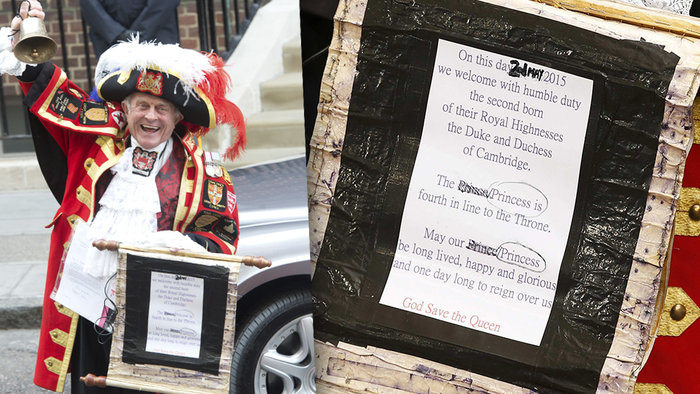 On this day 2nd MAY 2015
we welcome with humble duty
the second born
of their Royal Highnesses
the Duke and Duchess
of Cambridge.
The Prince/Princess is
fourth in line to the Throne.
May our Prince/Princess
be long lived, happy and glorious
and one day long to reign over us
God Save the Queen